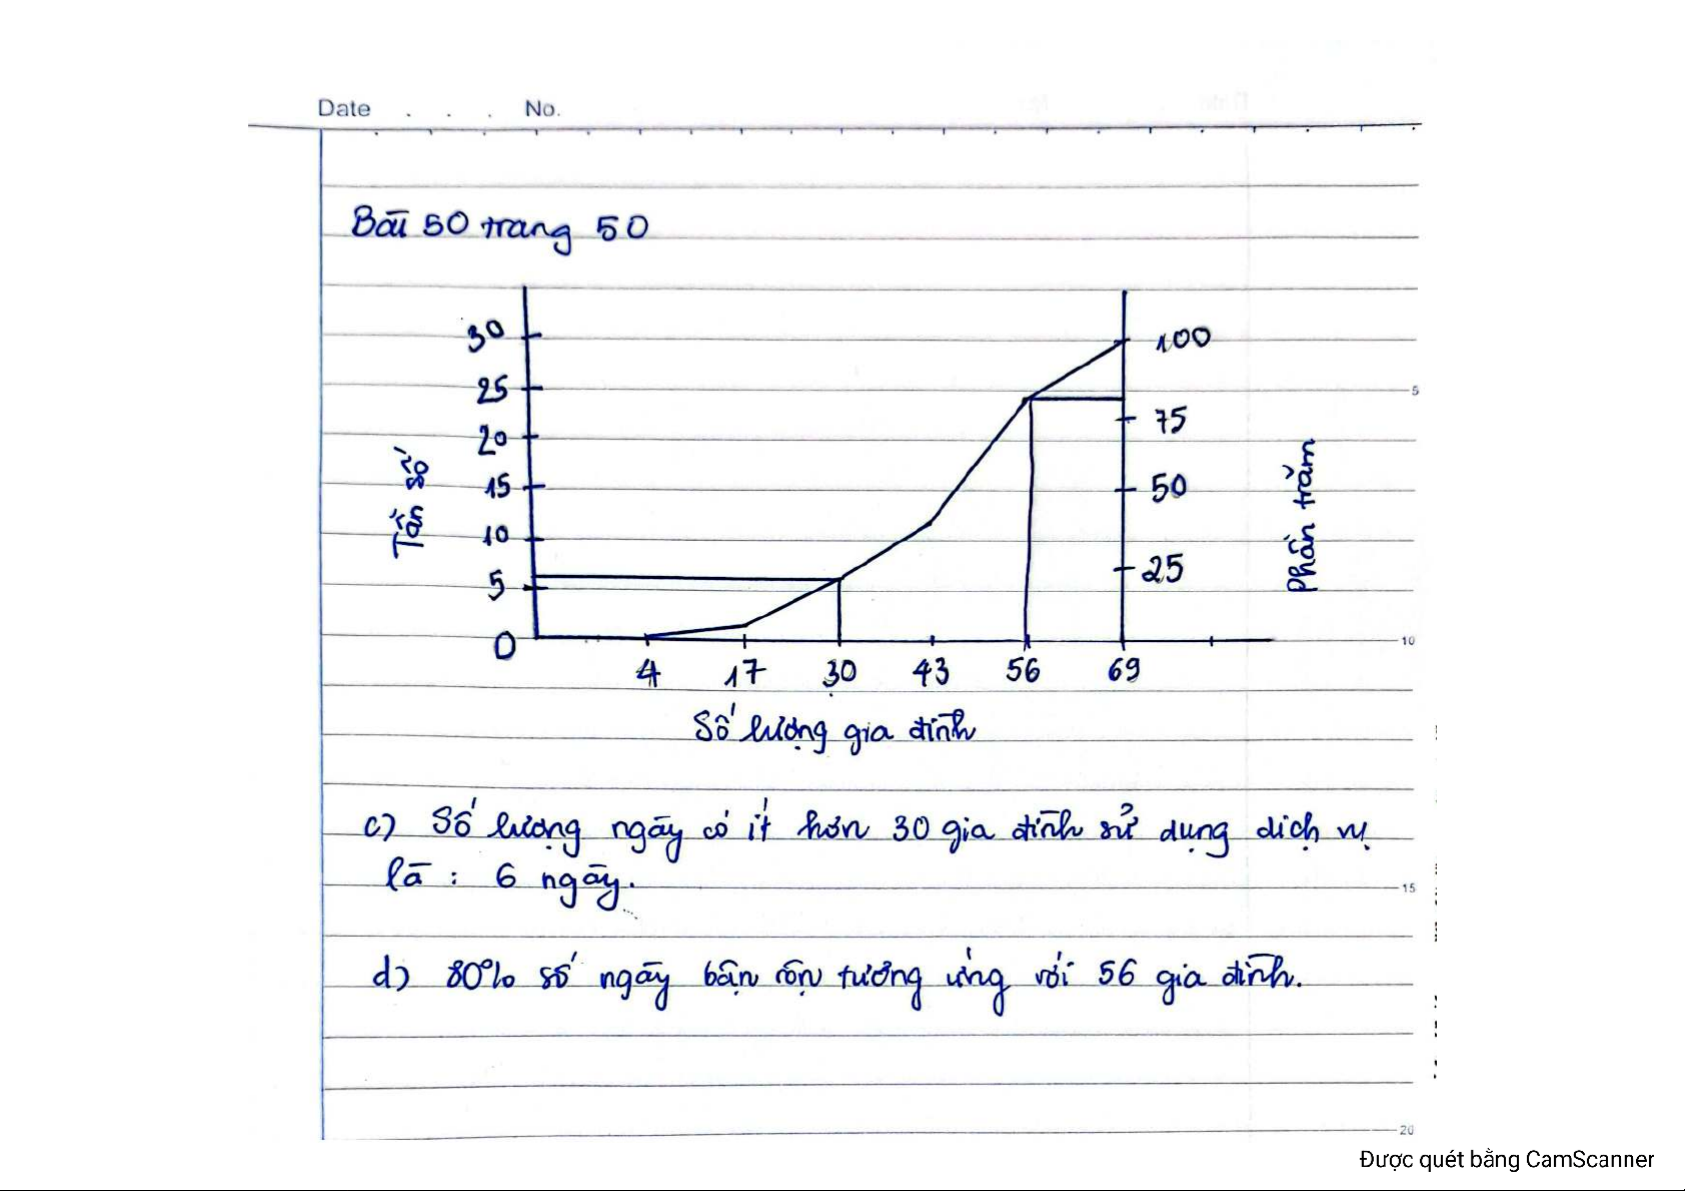 Date . . . No.
Bài 50 trang 50
30
25
20
15
10
5
0
Tần số
100
75
50
25
Phần trăm
4 17 30 43 56 69
Số lượng gia đình
c) Số lượng ngày có ít hơn 30 gia đình sử dụng dịch vụ
là : 6 ngày.
d) 80% số ngày bận rộn tương ứng với 56 gia đình.
5
10
15
20
Được quét bằng CamScanner